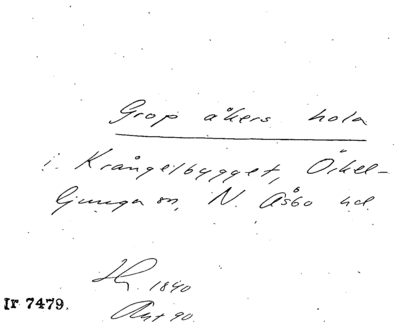 Grop åkers hola
i Krångelbygget, Örkel-
ljunga sn, N. Åsbo hd
1840
Avt 90.
Ir 7479.